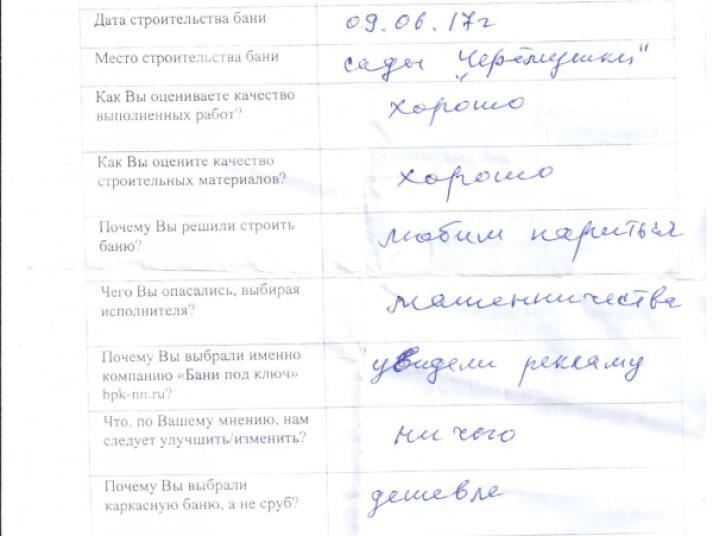 Дата строительства бани 09.06.17г
Место строительства бани сады "Черёмушки"
Как Вы оцениваете качество
выполненных работ? хорошо
Как Вы оцените качество
строительных материалов? хорошо
Почему Вы решили строить
баню? любим париться
Чего Вы опасались, выбирая
исполнителя? мошенничества
Почему Вы выбрали именно
компанию «Бани под ключ»
bpk-nn.ru? увидели рекламу
Что, по Вашему мнению, нам
следует улучшить/изменить? ничего
Почему Вы выбрали
каркасную баню, а не сруб? дешевле